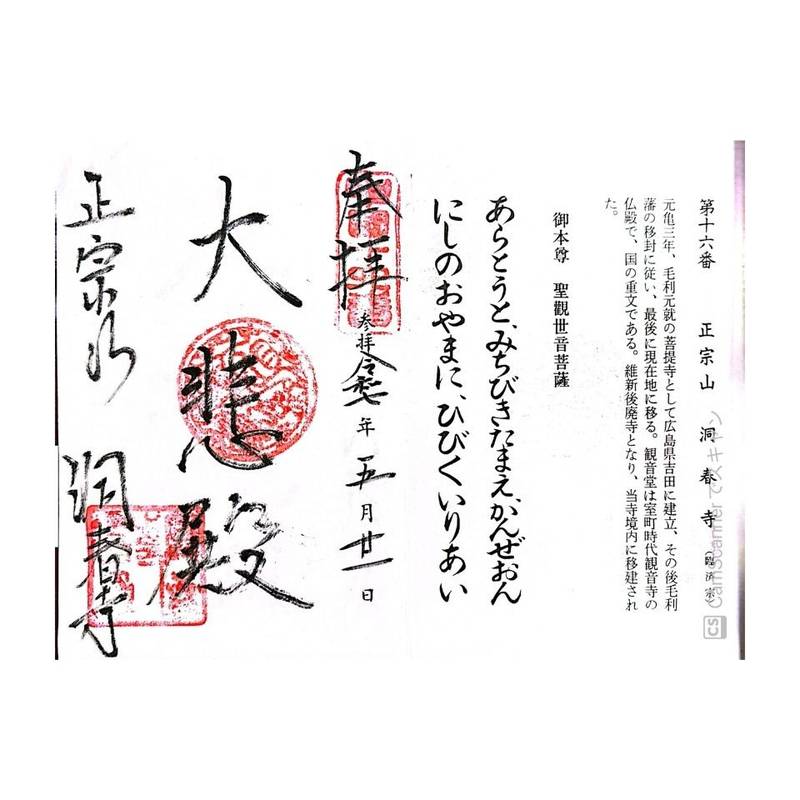 第十六番　正宗山　洞春寺（臨済宗）
元亀三年、毛利元就の菩提寺として広島県吉田に建立、その後毛利
藩の移封に従い、最後に現在地に移る。観音堂は室町時代観音寺の
仏殿で、国の重文である。維新後廃寺となり、当寺境内に移建され
た。
御本尊　聖觀世音菩薩
あらとうと、みちびきたまえ、かんぜおん
にしのおやまに、ひびくいりあい
奉拝
参拝令和七年五月廿一日
大悲殿
正宗山　洞春寺
CS CamScanner でスキャン